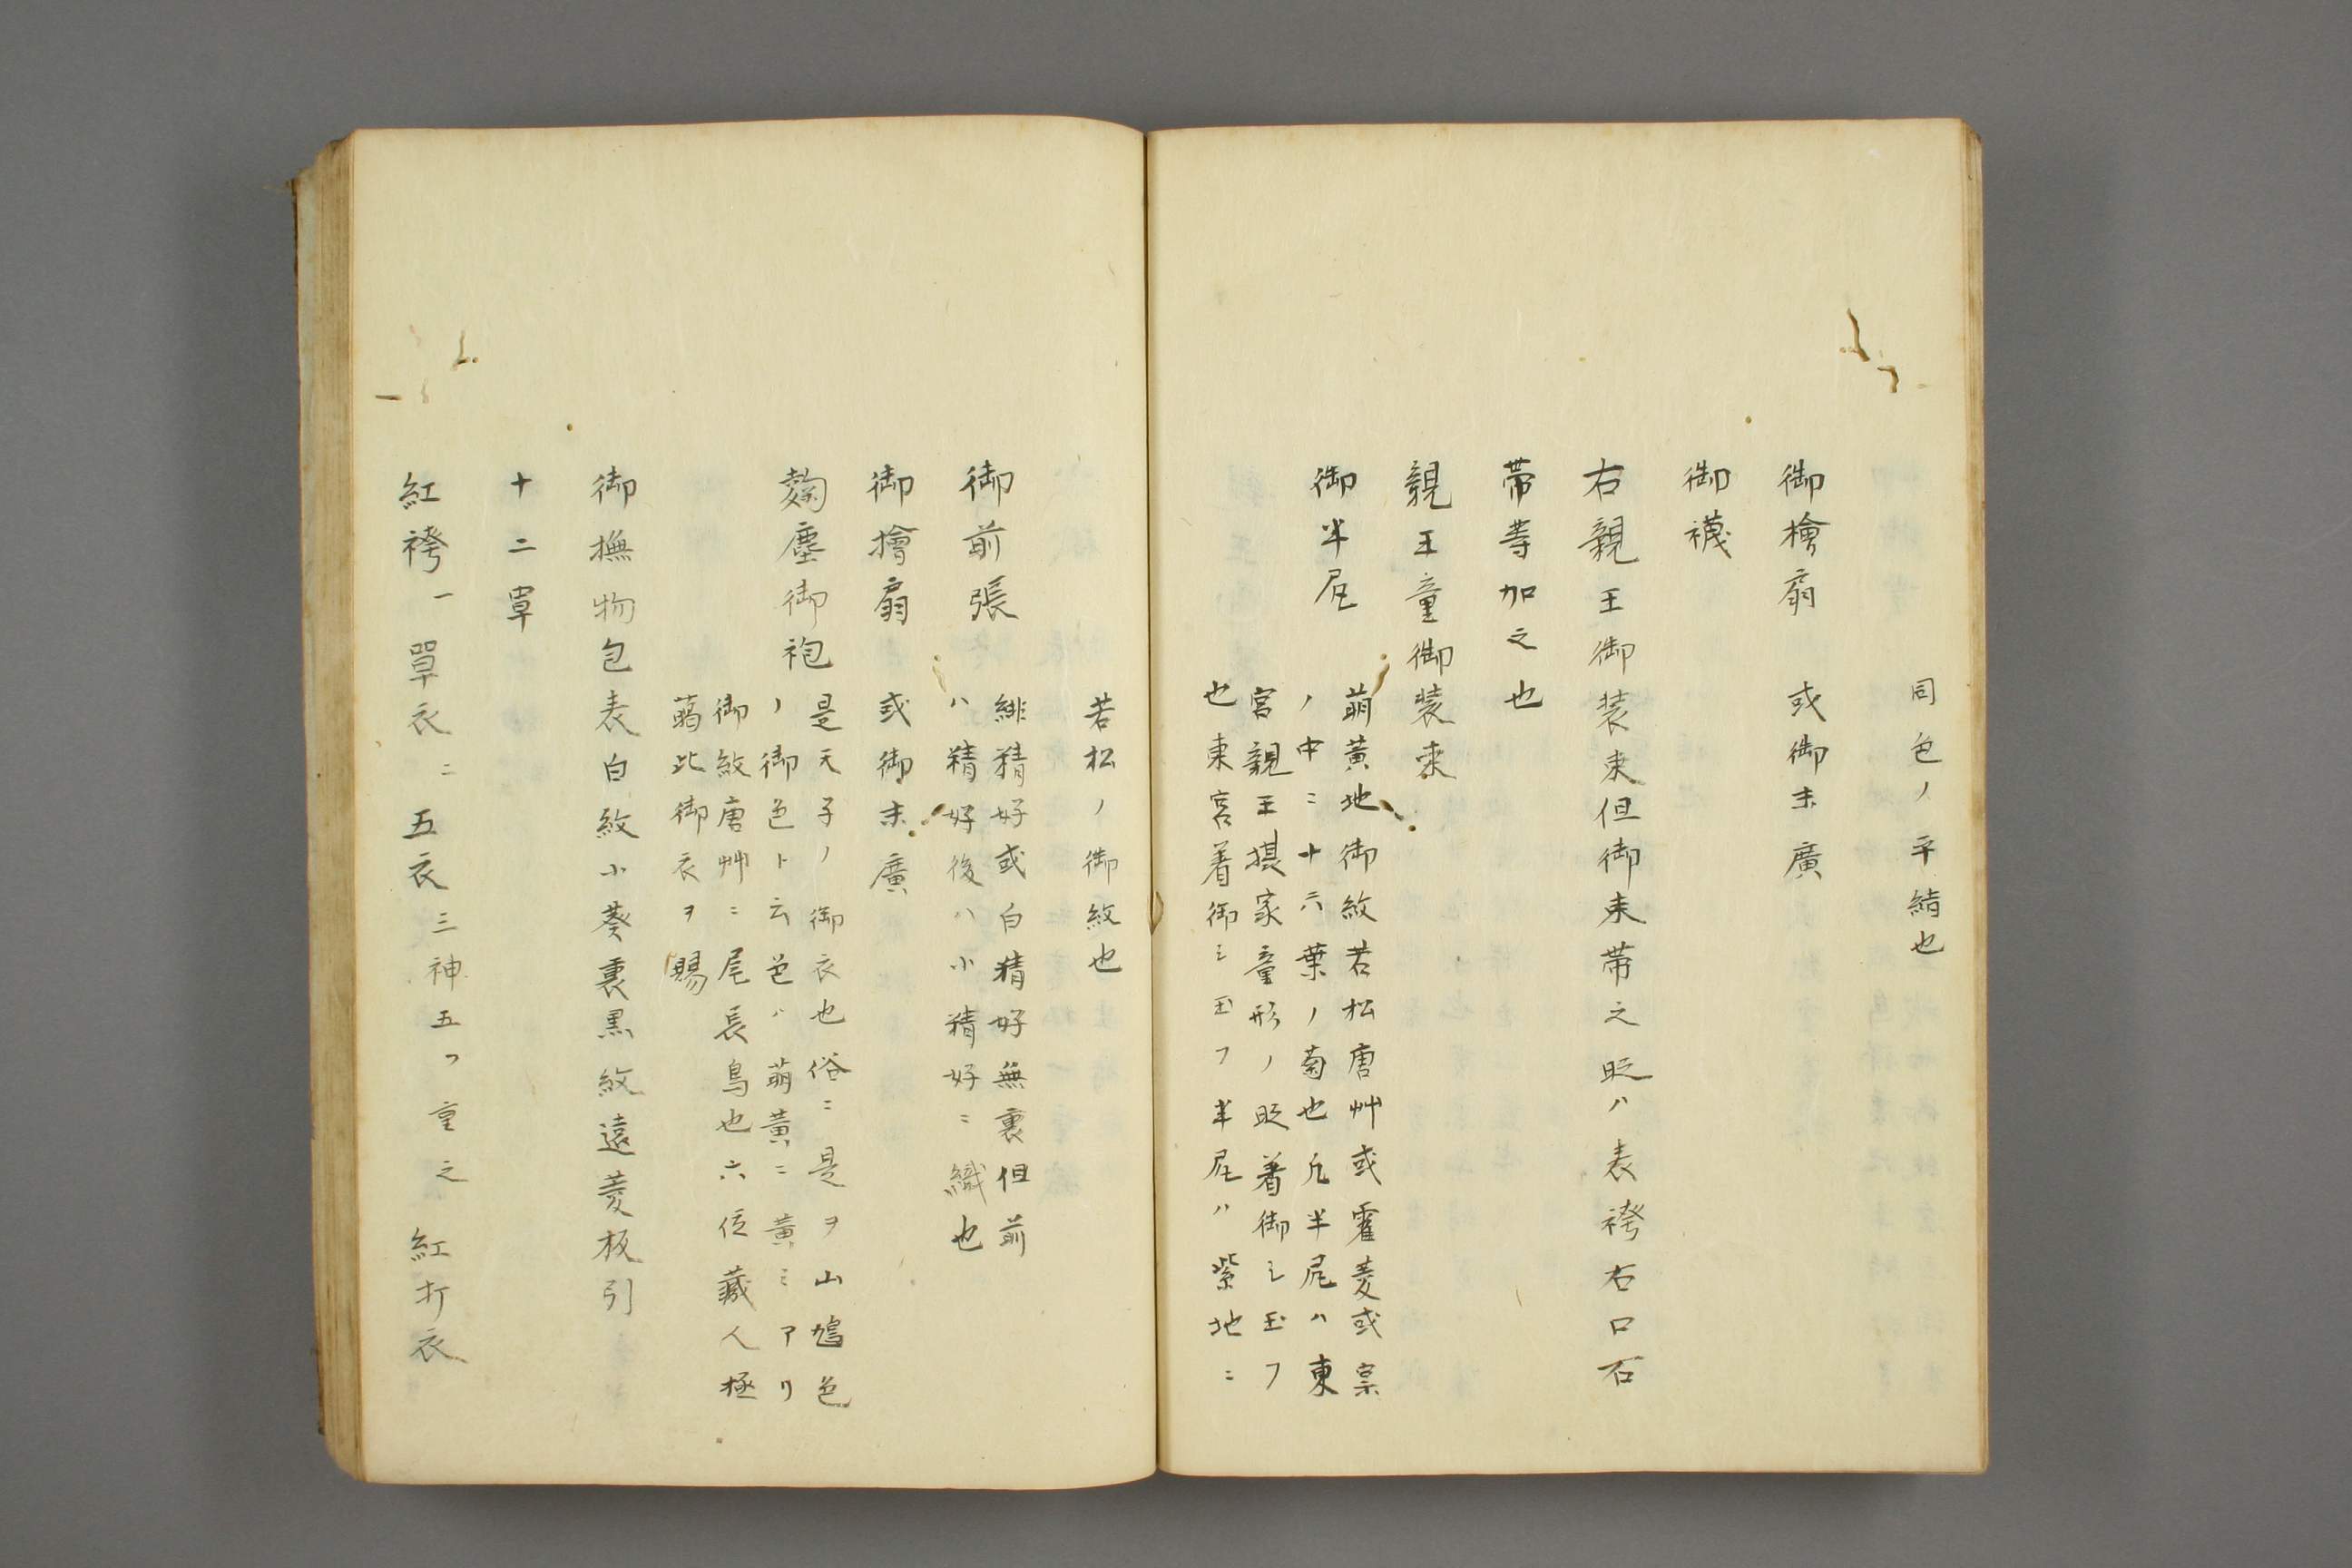 同色ノ平結也
御檜扇 或御末廣
御襪
右親王御装束但御束帯之時ハ表袴右口石
帯等加之也
親王童御装束
御半尻 萌黄地御紋若松唐艸或霍菱或窠
ノ中ニ十六葉ノ菊也凢半尻ハ東
宮親王摂家童形ノ時着御シ玉フ
也東宮着御シ玉フ半尻ハ紫地ニ
若松ノ御紋也
御前張 緋精好或白精好無裏但前
ハ精好後ハ小精好ニ織也
御檜扇 或御末廣
麹塵御袍 是天子ノ御衣也俗ニ是ヲ山鳩色
ノ御色ト云色ハ萌黄ニ黄ミアリ
御紋唐艸ニ尾長鳥也六位蔵人極
﨟此御衣ヲ賜
御撫物包表白紋小葵裏黒紋遠菱板引
十二単
紅袴一單衣二五衣三神五ツ重之紅打衣